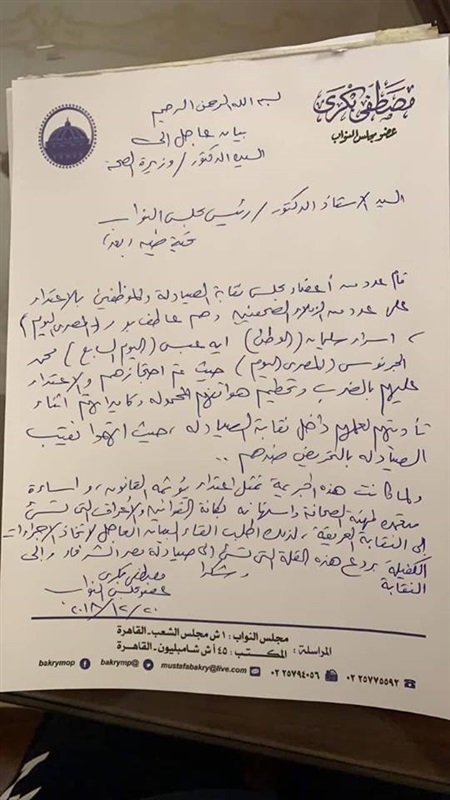 مصطفى بكرى
عضو مجلس النواب
بسم الله الرحمن الرحيم
بيان عاجل إلى
السيد الدكتور / وزيرة الصحة
السيد الاستاذ الدكتور / رئيس مجلس النواب
تحية طيبة وبعد
قام عدد من أعضاء مجلس نقابة الصيادلة والموظفين بالاعتداء
على عدد من الزملاء الصحفيين وهم عاطف بدر (المصرى اليوم)
، اسراء سليمان (الوطن) آية (اليوم السابع) محمد
(المصرى اليوم) حيث تم احتجازهم والاعتداء
عليهم بالضرب وتحطيم هواتفهم المحمولة وكاميراتهم اثناء
تأديتهم لعملهم داخل نقابة الصيادلة، حيث اتهموا نقيب
الصيادلة بالتحريض ضدهم
ولما كانت هذه الجريمة تمثل اعتداء يؤثمه القانون، واساءة
متعمدة لمهنة الصحافة واستهانة بكافة القوانين والأعراف التى تسىء
إلى النقابة العريقة، لذلك اطلب القاء البيان العاجل لاتخاذ الاجراءات
الكفيلة بردع هذه القلة التى تسىء إلى صيادلة مصر الشرفاء وإلى
النقابة
وشكرا
مصطفى بكرى
عضو مجلس النواب
٢٠١٨/١٢/٢٠
المراسلة : مجلس النواب : ١ ش مجلس الشعب - القاهرة
المكتب : ٤٥ أ ش شامبليون - القاهرة
٠٢ ٢٥٧٧٥٥٩٢ ٠٢ ٢٥٧٩٤٠٥٦ mustafabakry@live.com bakrymp@ bakrymop